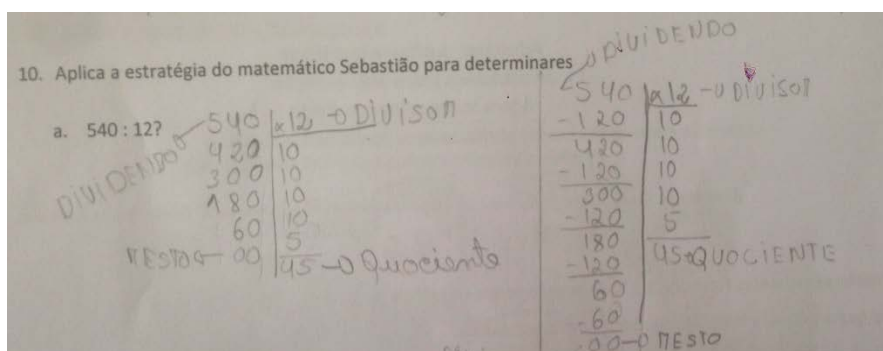 10. Aplica a estratégia do matemático Sebastião para determinares
a. 540 : 12?
DIVIDENDO
540 x12 → Divisor
420 10
300 10
180 10
60 10
5
RESTO ← 00 45 → Quociente
DIVIDENDO
540 x12 → DIVISOR
- 120 10
420 10
- 120 10
300 10
- 120 5
180 45 → QUOCIENTE
- 120
60
- 60
00 → RESTO